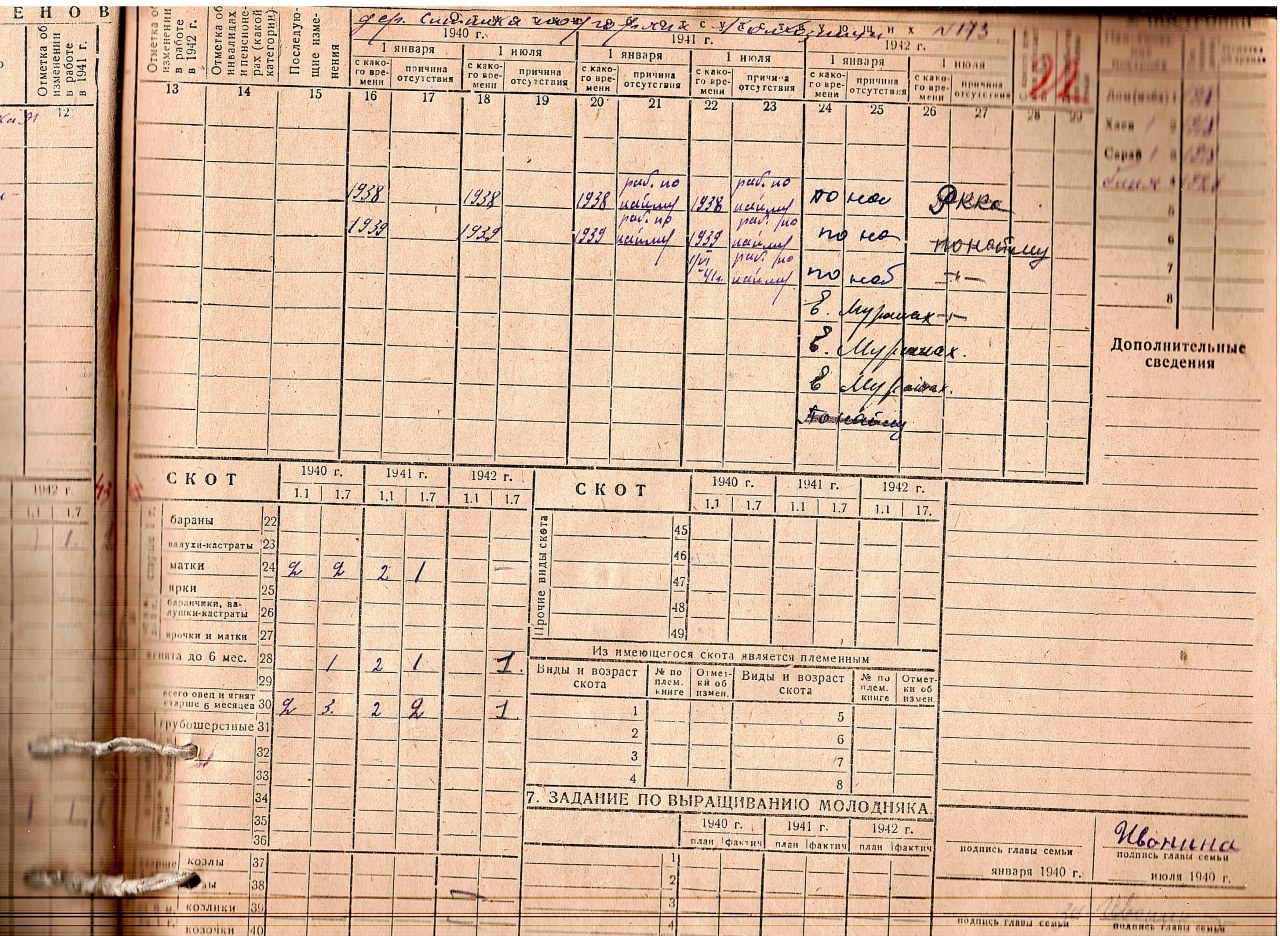 ЕНОВ
Отметка об изменении в работе в 1941 г.
12
1942 г.
1.1 1.7
1.
дер. №173
Отметка об изменении в работе в 1942 г.
Отметка об инвалидах и пенсионерах (какой категории)
Последующие изменения
1940 г. 1941 г. 1942 г.
1 января 1 июля 1 января 1 июля 1 января 1 июля
с какого времени причина отсутствия с какого времени причина отсутствия с какого времени причина отсутствия с какого времени причина отсутствия с какого времени причина отсутствия с какого времени причина отсутствия
22
13 14 15 16 17 18 19 20 21 22 23 24 25 26 27 28 29
1938 1938 1938 раб. по найму 1938 раб. по найму по наб РККА
1939 1939 1939 раб. по найму 1939 раб. по найму по на по найму
1/VI 41г. раб. по найму по наб -"-
В. Мурашах -"-
В. Мурашах.
В Мурашах.
По найму
Дом (изба) 1
Хлев 2
Сарай 3
баня 4
5
6
7
8
Дополнительные сведения
СКОТ 1940 г. 1941 г. 1942 г.
1.1 1.7 1.1 1.7 1.1 1.7
бараны 22
валухи-кастраты 23
матки 24 2 2 2 1 –
ярки 25
баранчики, валушки-кастраты 26
ярочки и матки 27
ягнята до 6 мес. 28 1 2 1 1.
29
всего овец и ягнят старше 6 месяцев 30 2 3. 2 2 1
грубошерстные 31
32
33
34
35
36
козлы 37
38
козлики 39
козочки 40
СКОТ 1940 г. 1941 г. 1942 г.
1.1 1.7 1.1 1.7 1.1 17.
Прочие виды скота
45
46
47
48
49
Из имеющегося скота является племенным
Виды и возраст скота № по плем. книге Отметки об измен. Виды и возраст скота № по плем. книге Отметки об измен.
1 5
2 6
3 7
4 8
7. ЗАДАНИЕ ПО ВЫРАЩИВАНИЮ МОЛОДНЯКА.
1940 г. 1941 г. 1942 г.
план фактич план фактич план фактич
1
2
3
4
Ивонина
подпись главы семьи подпись главы семьи
января 1940 г. июля 1940 г.
подпись главы семьи подпись главы семьи